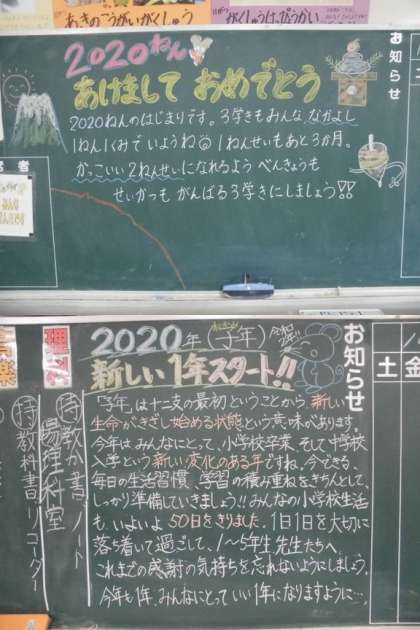 あきのこうがいがくしゅう
がくしゅうはっぴょうかい
お知らせ
2020ねん
あけまして おめでとう
2020ねんのはじまりです。3学きもみんな、なかよし
1ねん1くみで いようね 1ねんせいも あと3か月。
かっこいい2ねんせいになれるよう べんきょうも
せいかつも がんばる3学きにしましょう!!
お知らせ
土
金
2020年(子年) 令和2年!!
新しい1年スタート!!
「子年」は十二支の最初ということから、新しい
生命がきざし始める状態という意味があります。
今年はみんなにとって、小学校卒業、そして中学校
入学という新しい変化のある年ですね。今できる、
毎日の生活習慣、学習の積み重ねをきちんとして、
しっかり準備していきましょう!!みんなの小学校生活
も、いよいよ50日をきりました。1日1日を大切に
落ち着いて過ごして、1〜5年生、先生たちへ、
これまでの感謝の気持ちを忘れないようにしましょう。
今年も1年、みんなにとっていい1年になりますように…。
理
持教か書、ノート
場理科室
持教科書、リコーダー